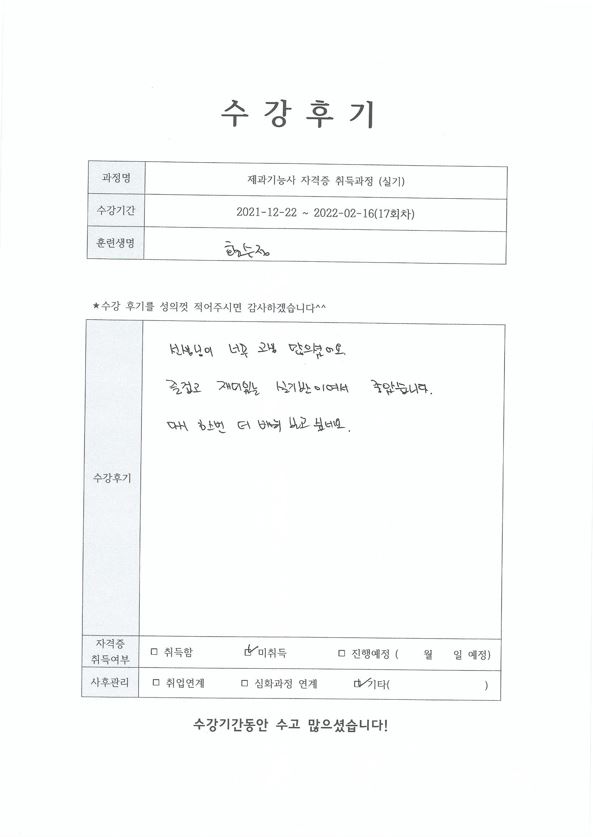 수 강 후 기
과정명 제과기능사 자격증 취득과정 (실기)
수강기간 2021-12-22 ~ 2022-02-16(17회차)
훈련생명
★수강 후기를 성의껏 적어주시면 감사하겠습니다^^
선생님이 너무 고생 많으셨어요
즐겁고 재미있는 실기반이여서 좋았습니다.
다시 한번 더 배워 보고 싶네요.
수강후기
자격증
취득여부 □ 취득함 ☑ 미취득 □ 진행예정 ( 월 일 예정)
사후관리 □ 취업연계 □ 심화과정 연계 ☑ 기타( )
수강기간동안 수고 많으셨습니다!